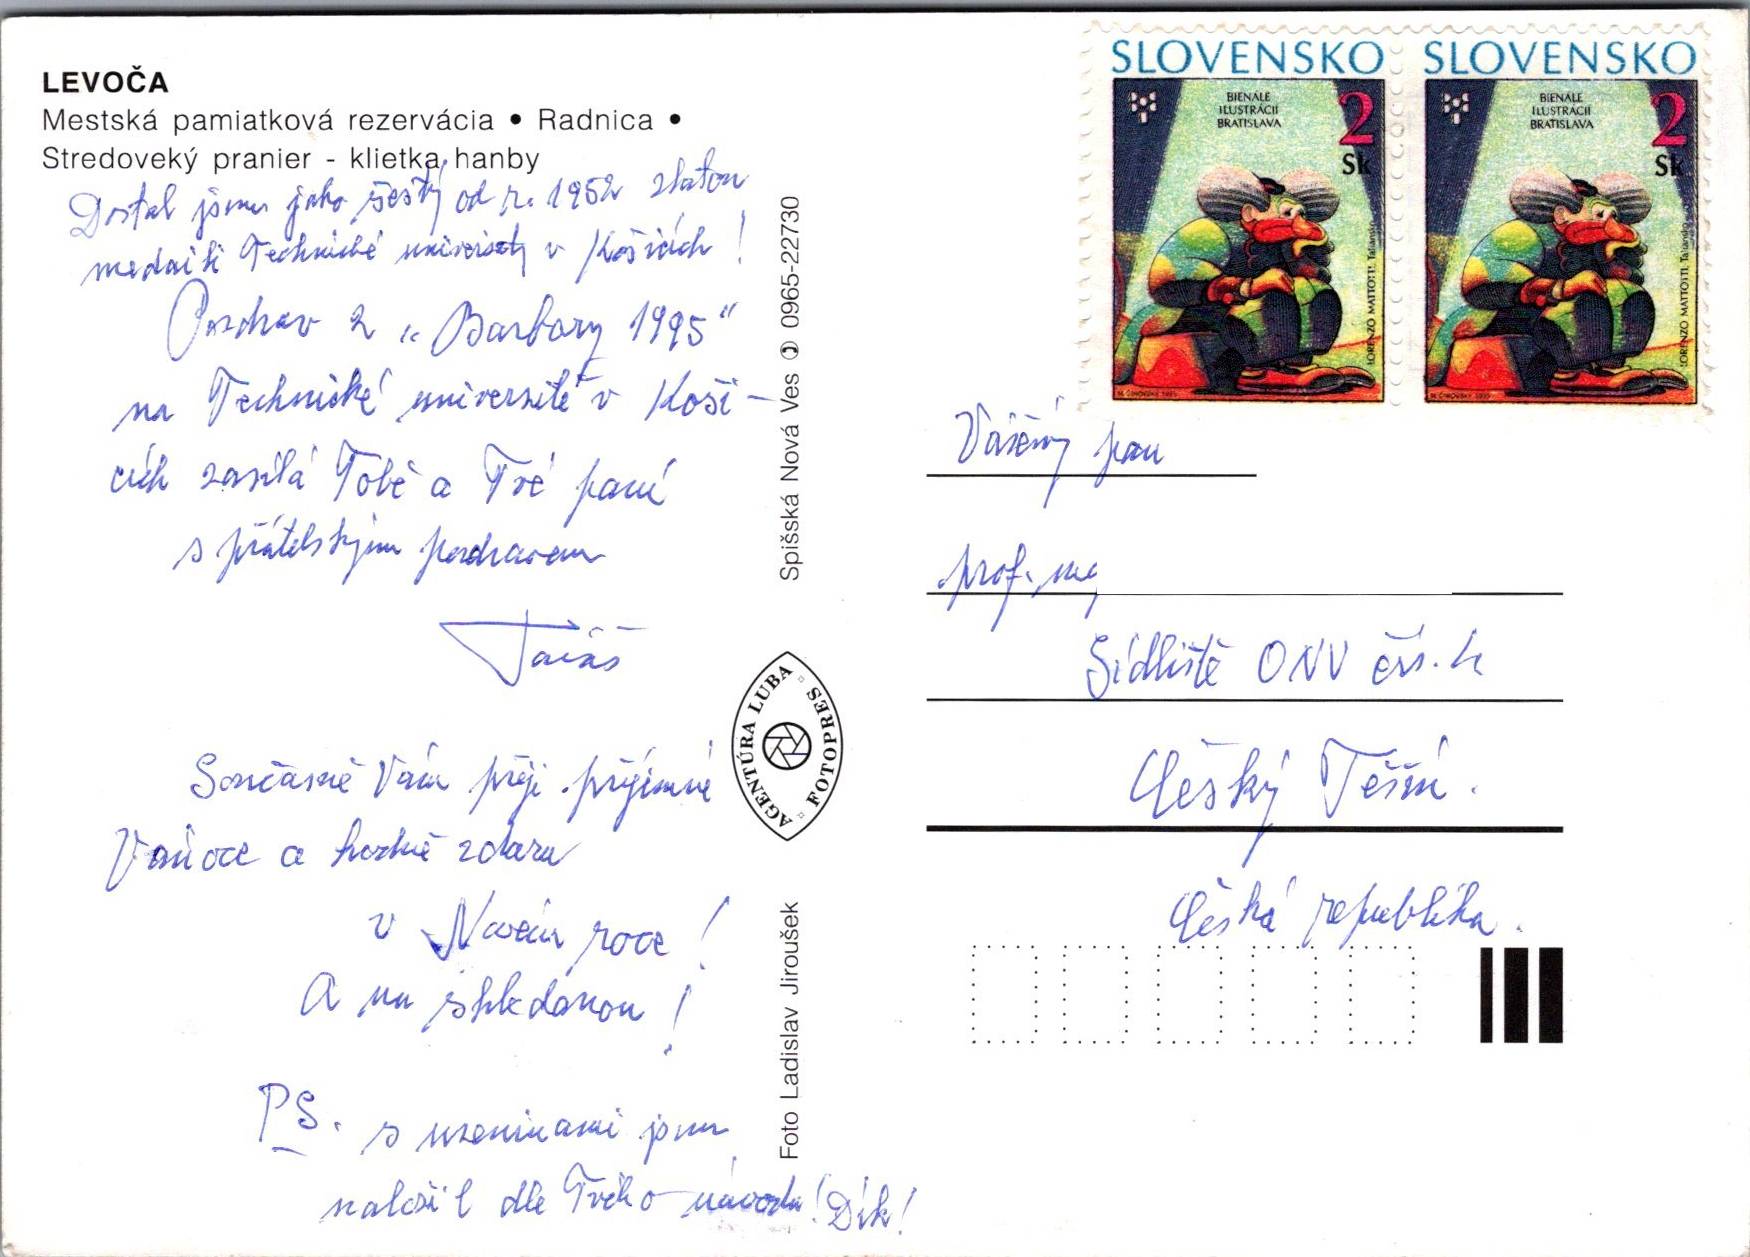 LEVOČA
Mestská pamiatková rezervácia • Radnica •
Stredoveký pranier - klietka hanby
Dostal jsem jako šestý od r. 1952 zlatou
medaili Technické university v Košicích!
Pozdrav z „Barbory 1995"
na Technické universitě v Koši-
cích zasílá Tobě a Tvé paní
s přátelským pozdravem
Současně Vám přeji příjemné
Vánoce a hodně zdaru
v Novém roce!
A na shledanou!
PS. s uzeninami jsem
naložil dle Tvého návodu! Dík!
Spišská Nová Ves 0965-22730
AGENTÚRA LUBA
FOTOPRES
Foto Ladislav Jiroušek
SLOVENSKO
BIENÁLE
ILUSTRÁCIÍ
BRATISLAVA
2
Sk
LORENZO MATTOTTI, Taliansko
SLOVENSKO
BIENÁLE
ILUSTRÁCIÍ
BRATISLAVA
2
Sk
LORENZO MATTOTTI, Taliansko
Vážený pan
prof. ing
Sídliště ONV čís. 4
Český Těšín.
Česká republika.